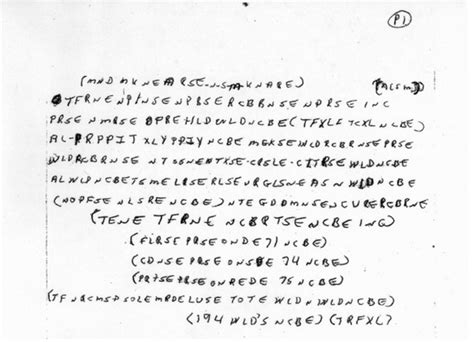 P1
(MNDMKNEARSE-N-S-M-KNARE) (ACSM)
OTFRNENPTNSENPBSERCBBNSENPRSEINC
PRSENMRSEOPREHLDWLDNCBE(TFXLFTCXLNCBE)
AL-PRPPITXLYPPIYNCBEMGKSEWLDRCBRNSEPRSE
WLDRCBRNSENTOSNENTXSE-CRSLE-CITRSEWLDNCBE
ALWLDNCBETSMELRSERLSEURGLSNEASNWLDNCBE
(NOPFSENLSRENCBE)NTEGDDMNSENCURERCBRNE
(TENETFRNENCBRTSENCBEING)
(FLRSEPRSEONDE71NCBE)
(CDNSEPRSEONSDE74NCBE)
(PRTSEPRSEONREDE75NCBE)
(TFNQCMSPSOLEMRDELUSETOTEWLDNWLDNCBE)
(194WLD'SNCBE)(TRFXL)